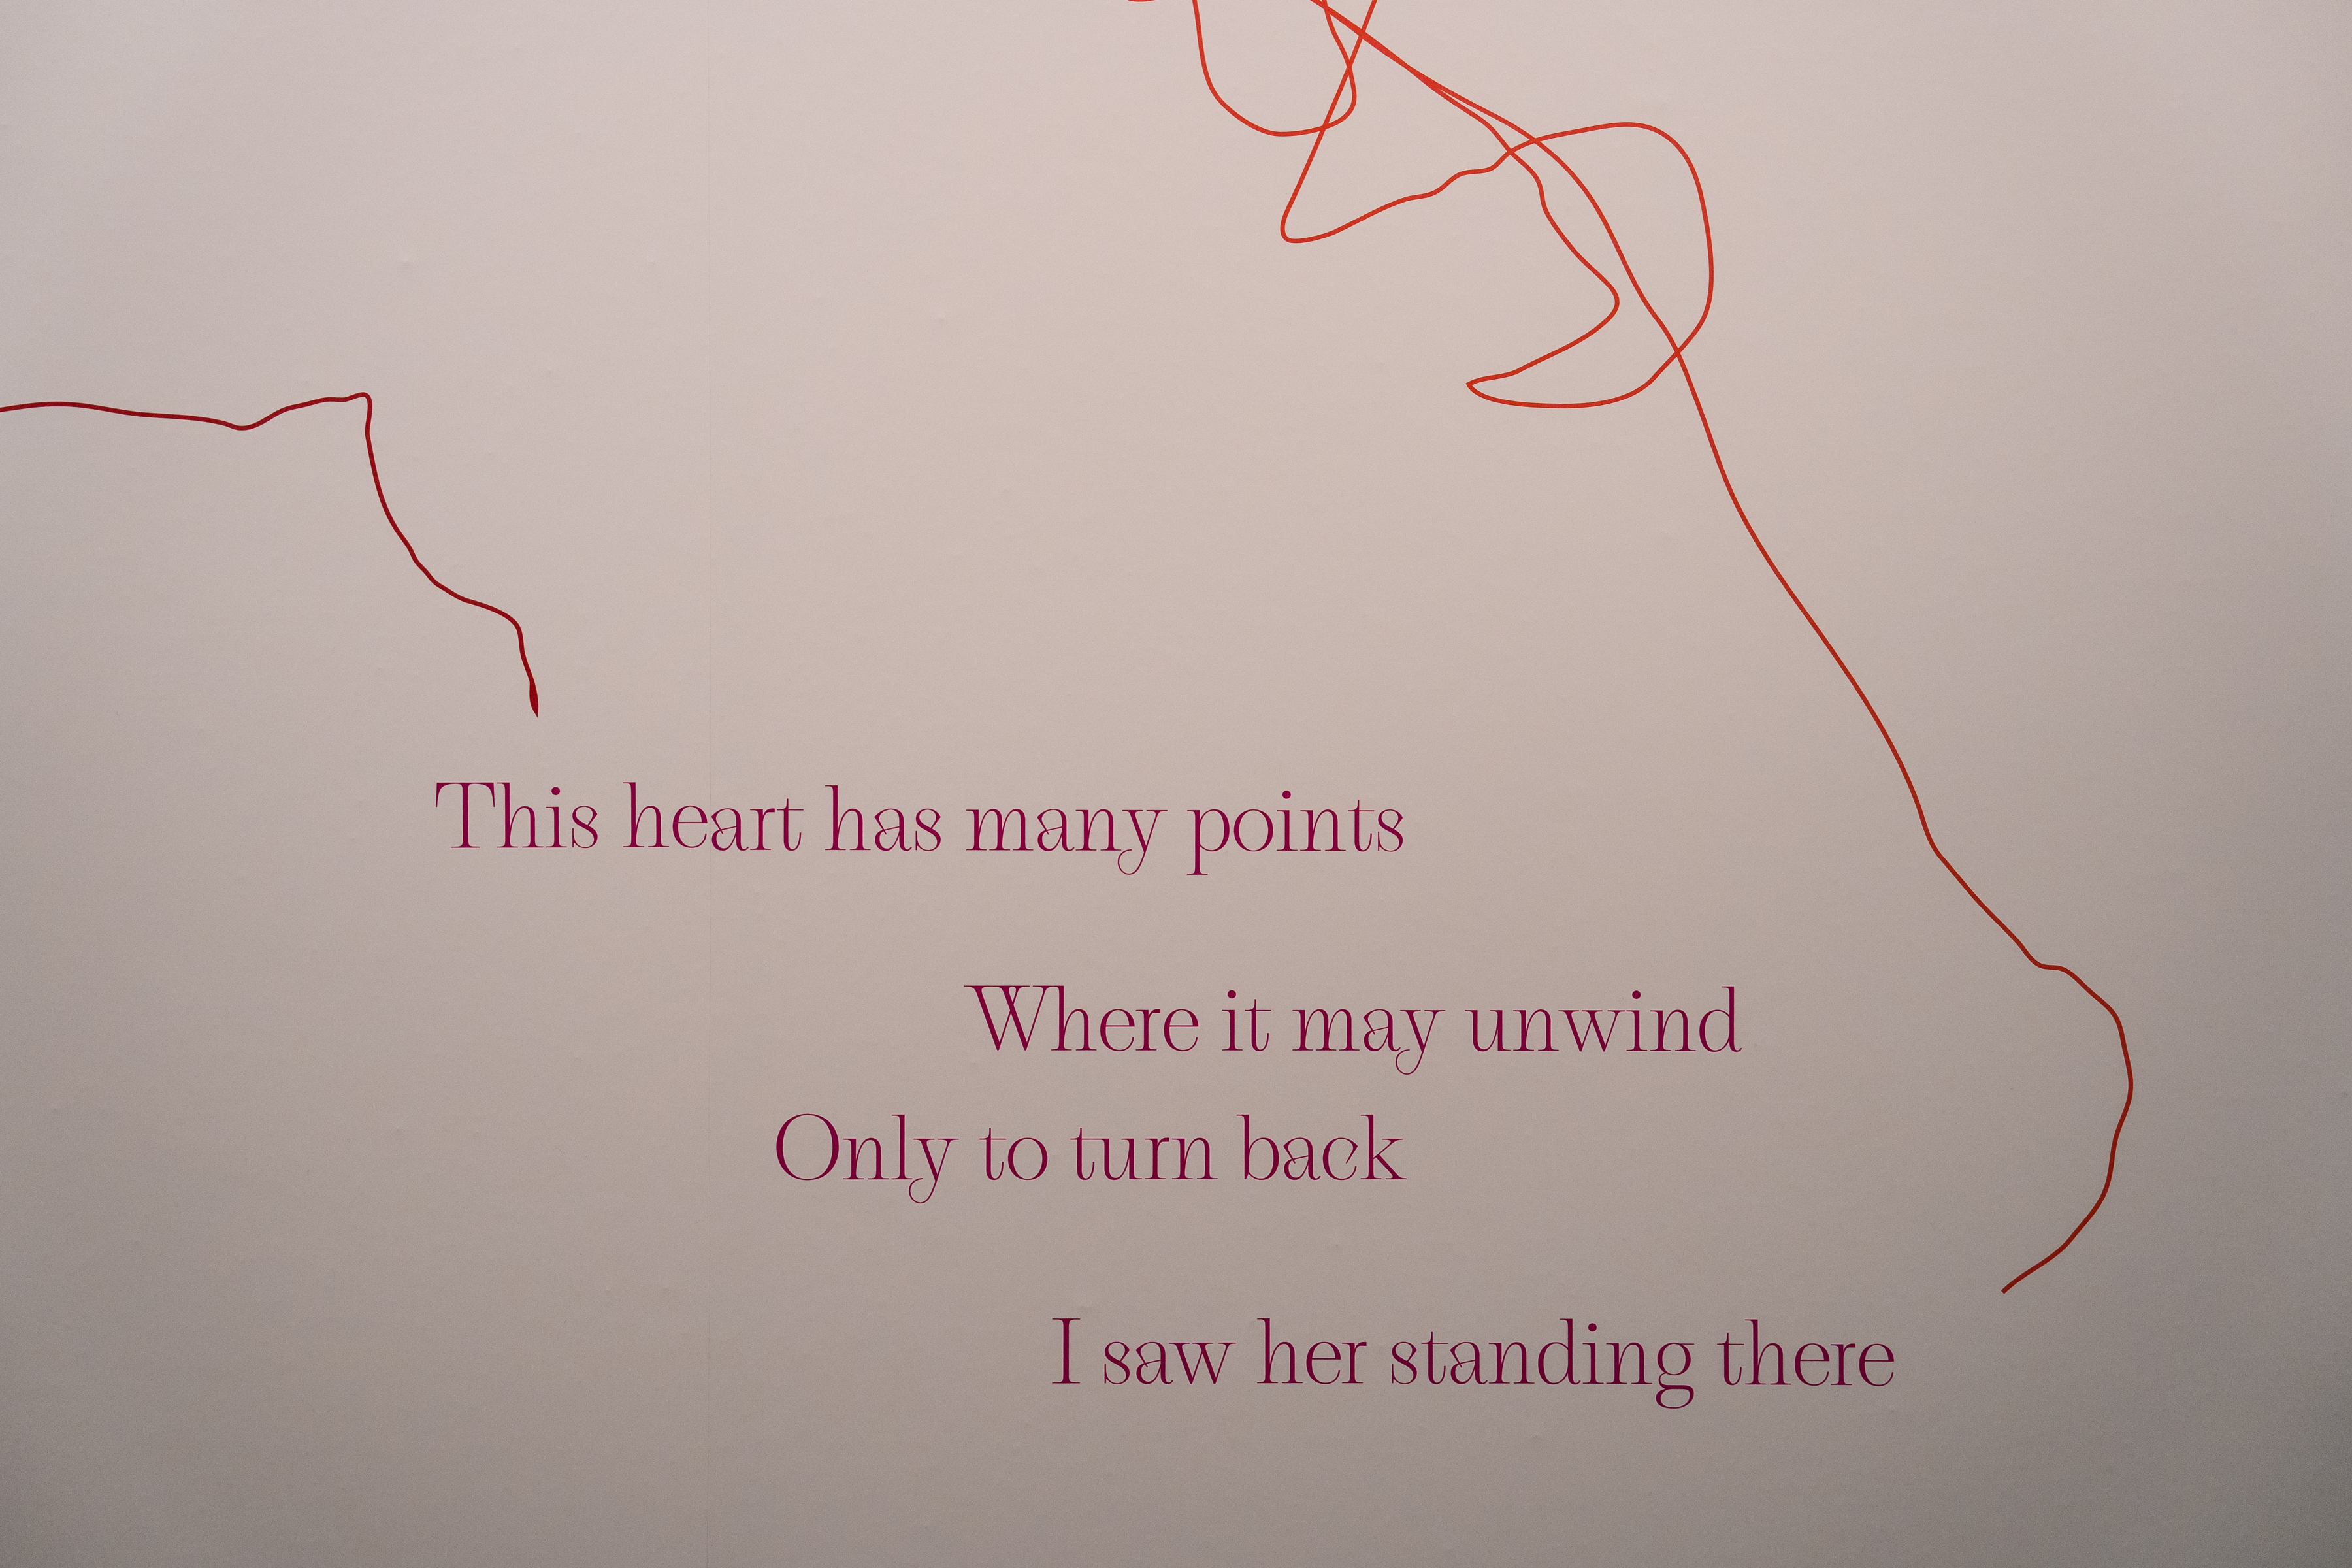 This heart has many points
Where it may unwind
Only to turn back
I saw her standing there